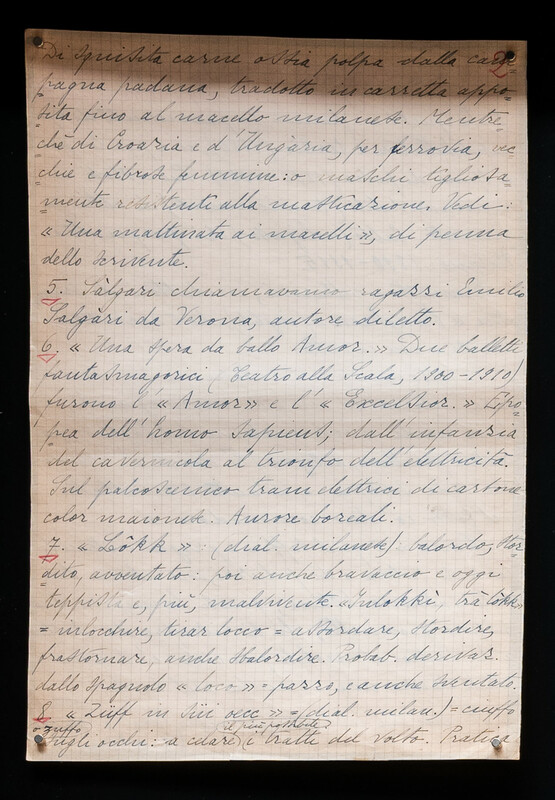 2
Di squisita carne ossia polpa dalla cam=
pagna padana, tradotto in carretta appo=
sita fino al macello milanese. Mentre=
chè di Croazia e d'Ungària, per ferrovia, vec=
chie e fibrose femmine: o maschi tigliosa=
mente resistenti alla masticazione. Vedi:
« Una mattinata ai macelli », di penna
dello scrivente.
5. Sàlgari chiamavamo ragazzi Emilio
Salgàri da Verona, autore diletto.
6. « Una spera da ballo Amor. » Due balletti
fantasmagorici (Teatro alla Scala, 1900-1910)
furono l'« Amor » e l'« Excelsior. » Epo=
pea dell'homo sapiens; dall'infanzia
del cavernicola al trionfo dell'elettricità.
Sul palcoscenico tram elettrici di cartone
color maionese. Aurore boreali.
7. « Lôkk » : (dial. milanese): balordo, stor=
dito, avventato: poi anche bravaccio e oggi
teppista e, più, malvivente. «Inlokkì, trà lôkk»
= inlocchire, tirar locco = assordare, stordire,
frastornare, anche sbalordire. Probab. derivaz.
dallo spagnolo « loco » = pazzo, e anche sventato.
8. « Züff in süi oecc » = (dial. milan.) = ciuffo
o zuffo
sugli occhi: a celare (il più possibile) i tratti del volto. Pratica